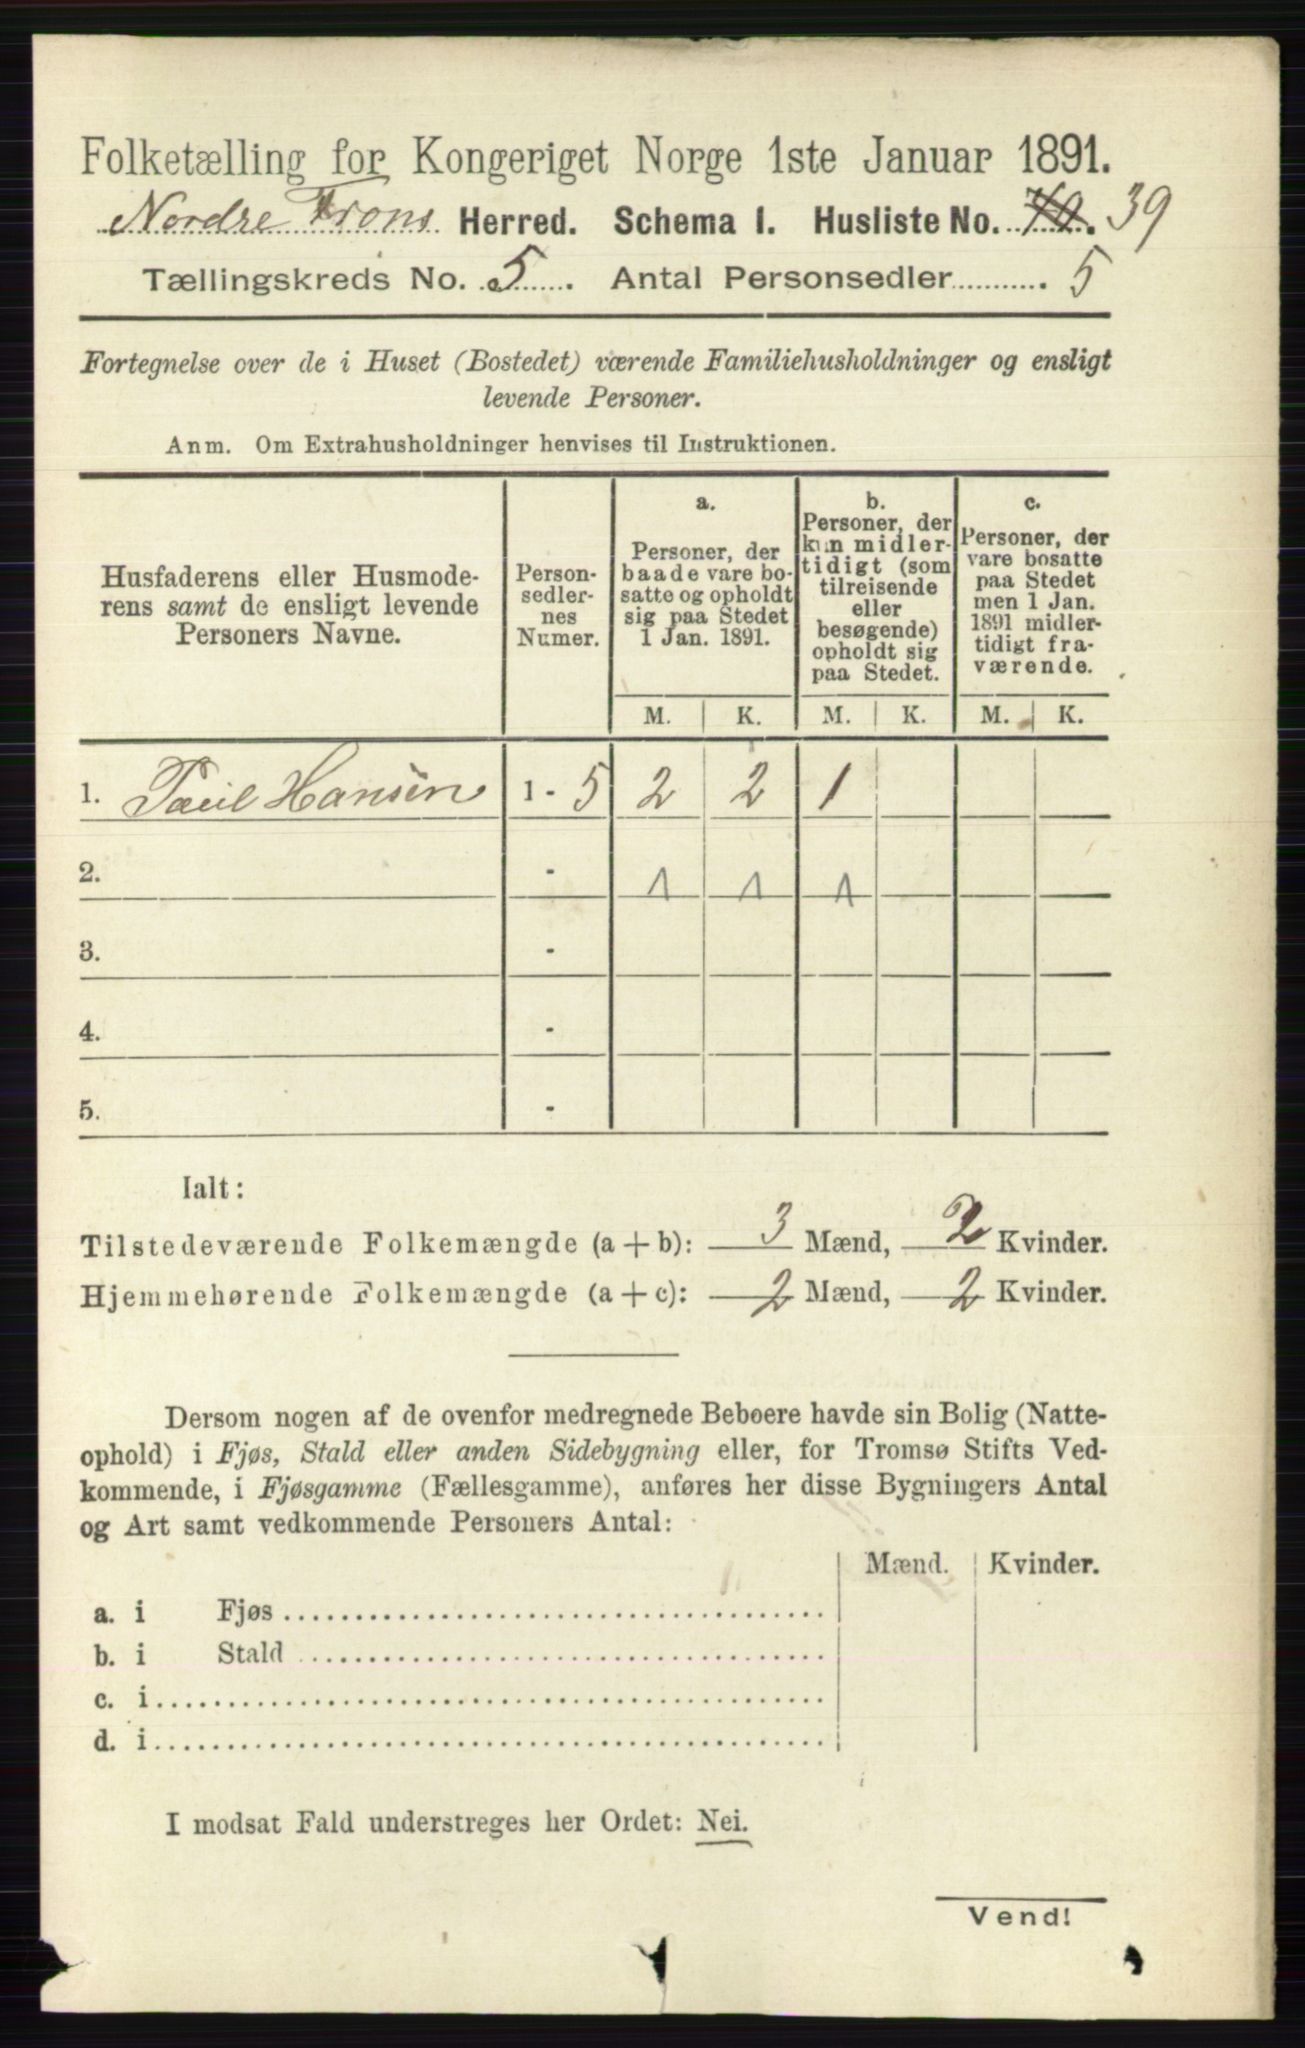 Folketælling for Kongeriget Norge 1ste Januar 1891.
Nordre Frons Herred. Schema I. Husliste No. 40. 39
Tællingskreds No. 5. Antal Personsedler. 5
Fortegnelse over de i Huset (Bostedet) værende Familiehusholdninger og ensligt
levende Personer.
Anm. Om Extrahusholdninger henvises til Instruktionen.
Husfaderens eller Husmode-
rens samt de ensligt levende
Personers Navne.
Person-
sedler-
nes
Numer.
a.
Personer, der
baade vare bo-
satte og opholdt
sig paa Stedet
1 Jan. 1891.
b.
Personer, der
kun midler-
tidigt (som
tilreisende
eller
besøgende)
opholdt sig
paa Stedet.
c.
Personer, der
vare bosatte
paa Stedet
men 1 Jan.
1891 midler-
tidigt fra-
værende.
M. K. M. K. M. K.
1. Paul Hansen 1 - 5 2 2 1
2. - 1 1 1
3. -
4. -
5. -
Ialt:
Tilstedeværende Folkemængde (a + b): 3 Mænd, 2 Kvinder.
Hjemmehørende Folkemængde (a + c): 2 Mænd, 2 Kvinder.
Dersom nogen af de ovenfor medregnede Beboere havde sin Bolig (Natte-
ophold) i Fjøs, Stald eller anden Sidebygning eller, for Tromsø Stifts Ved-
kommende, i Fjøsgamme (Fællesgamme), anføres her disse Bygningers Antal
og Art samt vedkommende Personers Antal:
Mænd. Kvinder.
a. i Fjøs
b. i Stald
c. i
d. i
I modsat Fald understreges her Ordet: Nei.
Vend!